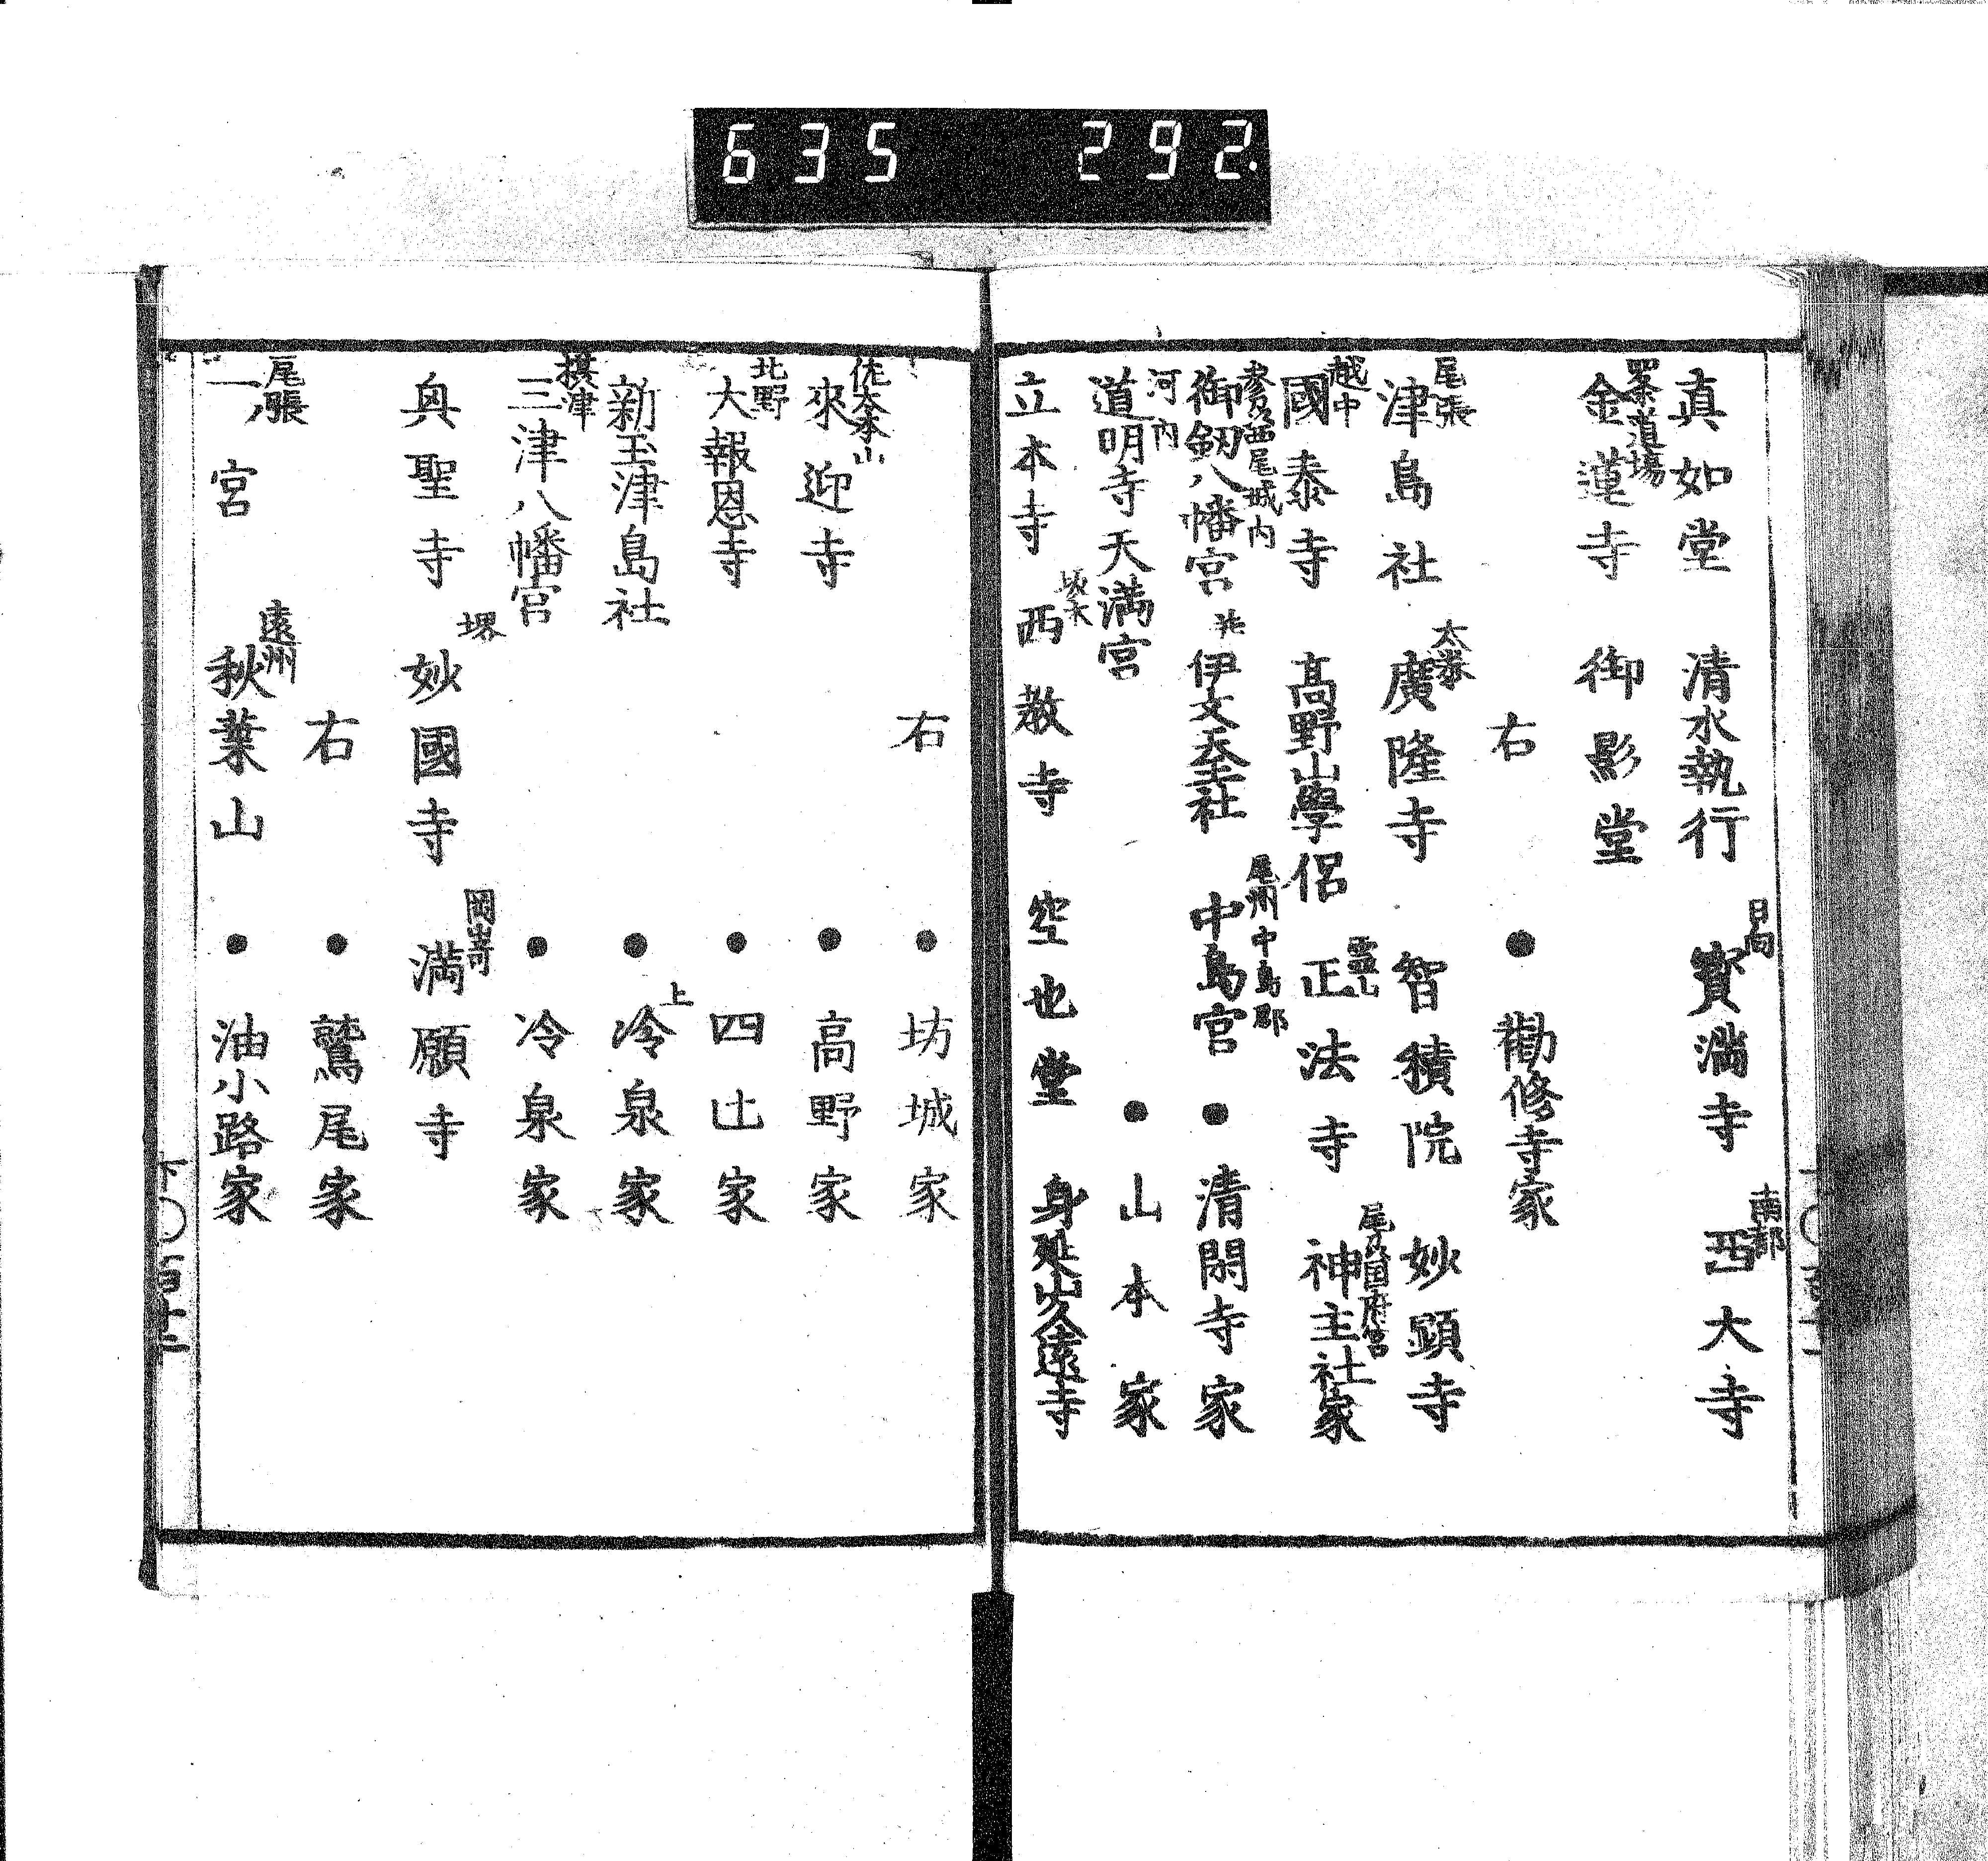 635 292.
真如堂 清水執行 日向 寳満寺 南都 西大寺
四条道場 金蓮寺 御影堂
右 ● 勸修寺家
尾張 津島社 太秦 廣隆寺 智積院 妙顕寺
越中 國泰寺 髙野山學侶 霊山 正法寺 尾州国府宮 神主社家
参州西尾城内 御劔八幡宮 共 伊文天王社 尾州中島郡 中島宮 ● 清閑寺家
河内 道明寺天満宮 ● 山本家
立本寺 坂本 西教寺 空也堂 身延山久遠寺
右 ● 坊城家
來迎寺 ● 高野家
北野 大報恩寺 ● 四辻家
新玉津島社 ● 上冷泉家
摂津 三津八幡宮 ● 冷泉家
興聖寺 堺 妙國寺 岡崎 満願寺
右 ● 鷲尾家
尾張 一ノ宮 遠州 秋葉山 ● 油小路家